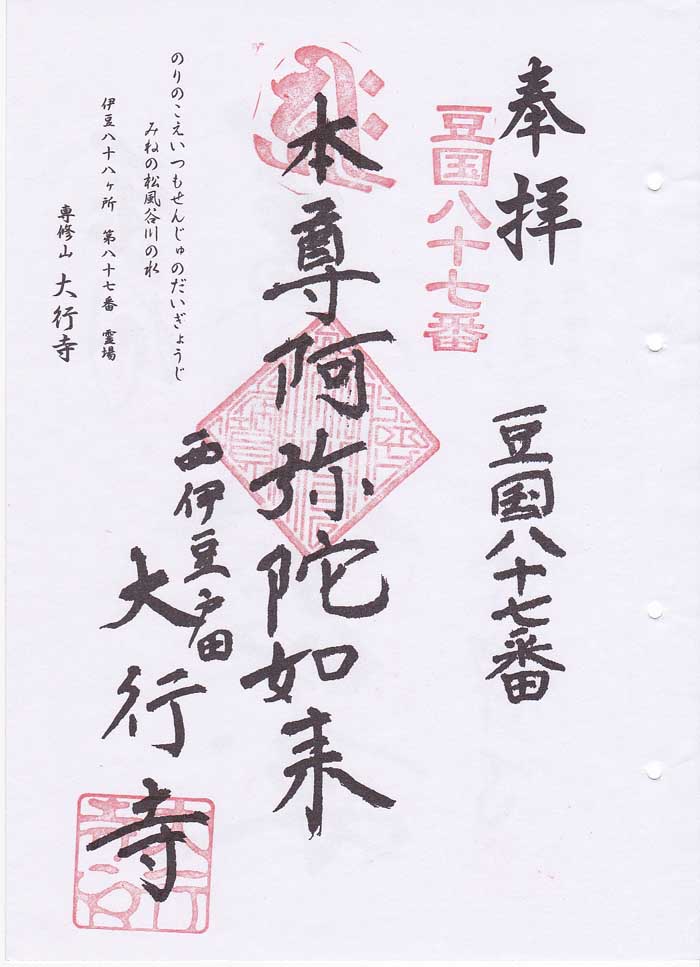 奉拝
豆国八十七番
豆国八十七番
本尊阿弥陀如来
西伊豆戸田
大行寺
のりのこえいつもせんじゅのだいぎょうじ
みねの松風谷川の水
伊豆八十八ヶ所　第八十七番　霊場
専修山　大行寺